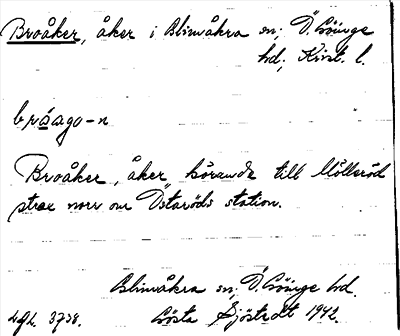 Broåker, åker i Blinvåkra sn; Ö. Göinge
hd; Krist. l.
bråago-n
Broåker, åker hörande till Mölleröd
strax norr om Östaröds station.
Blinvåkra sn; Ö. Göinge hd.
Gösta Sjöstedt 1942.
3738.